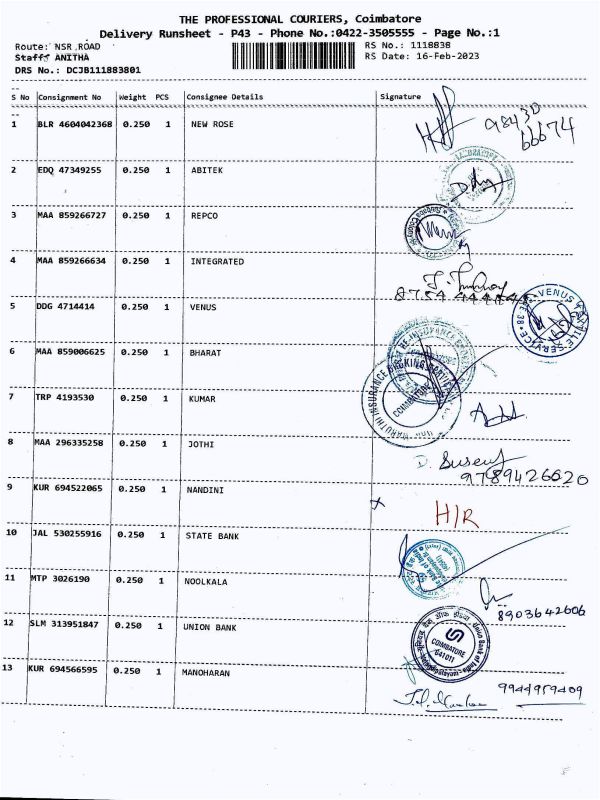 THE PROFESSIONAL COURIERS, Coimbatore
Delivery Runsheet - P43 - Phone No.:0422-3505555 - Page No.:1
Route: NSR ROAD RS No.: 1118838
Staff: ANITHA RS Date: 16-Feb-2023
DRS No.: DCJB111883801
S No Consignment No Weight PCS Consignee Details Signature
1 BLR 4604042368 0.250 1 NEW ROSE
98430
66674
2 EDQ 47349255 0.250 1 ABITEK
3 MAA 859266727 0.250 1 REPCO
4 MAA 859266634 0.250 1 INTEGRATED
5 DDG 4714414 0.250 1 VENUS
VENUS
6 MAA 859006625 0.250 1 BHARAT
MARUTHI INSURANCE BROKING SERVICES
COIMBATORE
7 TRP 4193530 0.250 1 KUMAR
8 MAA 296335258 0.250 1 JOTHI
9789426620
9 KUR 694522065 0.250 1 NANDINI
H/R
10 JAL 530255916 0.250 1 STATE BANK
11 MTP 3026190 0.250 1 NOOLKALA
8903642606
12 SLM 313951847 0.250 1 UNION BANK
Union Bank of India
COIMBATORE
641011
13 KUR 694566595 0.250 1 MANOHARAN
9944959409